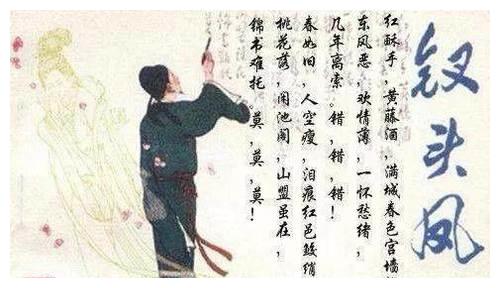 钗头凤
红酥手，黄藤酒，满城春色宫墙
东风恶，欢情薄，一怀愁绪，
几年离索。错，错，错！
春如旧，人空瘦，泪痕红邑鲛绡
桃花落，闲池阁，山盟虽在，
锦书难托。莫，莫，莫！